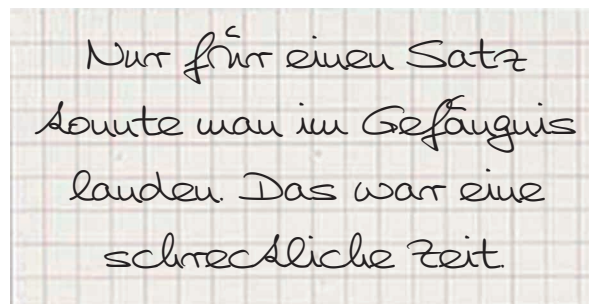 Nur für einen Satz
konnte man im Gefängnis
landen. Das war eine
schreckliche Zeit.